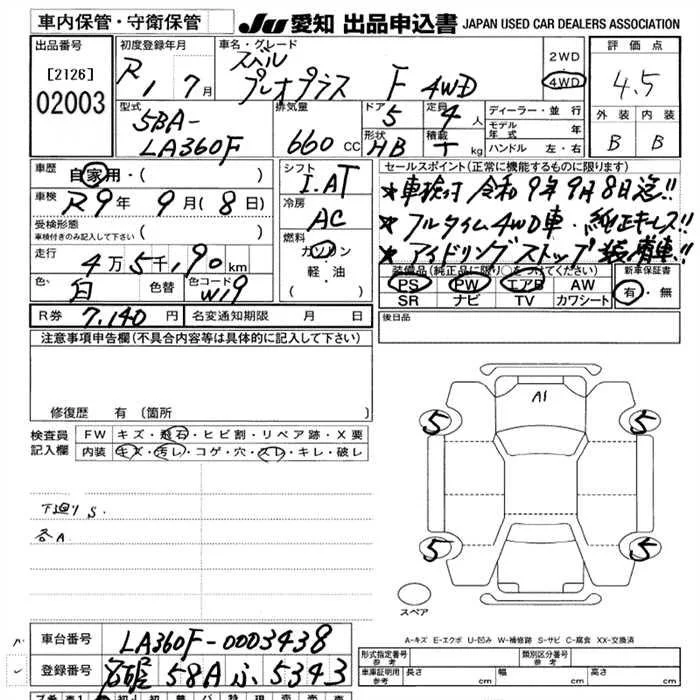 車内保管・守衛保管
JU 愛知 出品申込書 JAPAN USED CAR DEALERS ASSOCIATION
出品番号
[2126]
02003
初度登録年月
R1 7月
車名・グレード
スバル
プレオプラス F 4WD
2WD
4WD
評価点
4.5
外装 内装
B B
型式
5BA-
LA360F
排気量
660 CC
ドア 5
定員 4 人
形状 HB
積載 kg
ディーラー・並行
モデル年式 年
ハンドル 左・右
車歴 自家用・( )
車検 R9年 9月( 8日)
受検形態
車検付きのみ記入して下さい ( )
走行 4万5千190km
色 白 色替 色コード W19
シフト
I.AT
冷房
AC
燃料
ガソリン
軽・油
( )
セールスポイント(正常に機能するものに限ります)
★車検付 令和9年9月8日迄!!
★フルタイム4WD車・純正キーレス!!
★アイドリングストップ装備車!!
装備品(純正品に限り○をつけてください)
PS PW エアB AW
SR ナビ TV カワシート
新車保証書
有・無
R券 7,140円 名変通知期限 月 日
後日品
注意事項申告欄(不具合内容等は具体的に記入して下さい)
修復歴 有(箇所
検査員記入欄
FW キズ・飛石・ヒビ割・リペア跡・X要
内装 キズ・汚レ・コゲ・穴・スレ・キレ・破レ
下廻りS.
各A
A1
5 5
5 5
スペア
A-キズ E-エクボ U-凹み W-補修跡 S-サビ C-腐食 XX-交換済
車台番号 LA360F-0003438
登録番号 名古屋 58A ふ 5343
形式指定番号 参考
類別区分番号 参考
車庫証明用 参考 長さ cm 幅 cm 高さ cm